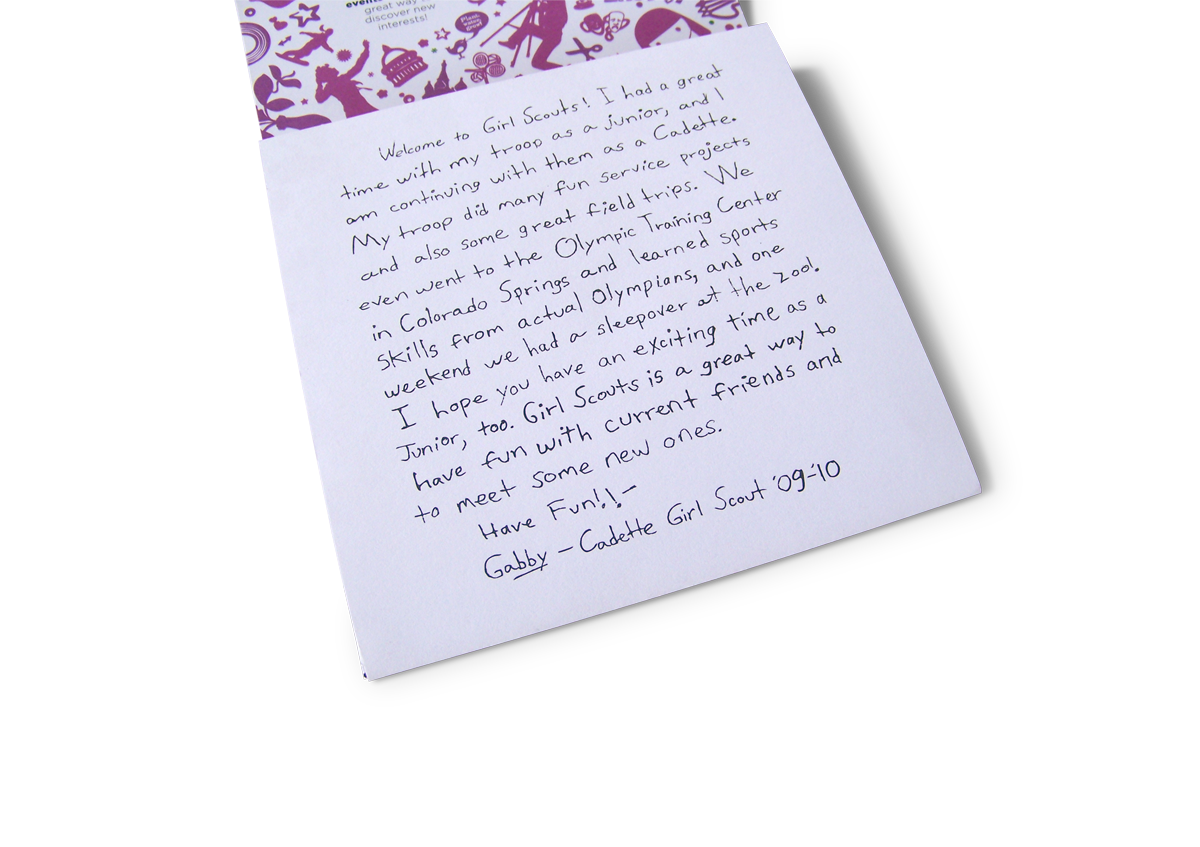 event
great way
discover new
interests!
Welcome to Girl Scouts! I had a great
time with my troop as a junior, and I
am continuing with them as a Cadette.
My troop did many fun service projects
and also some great field trips. We
even went to the Olympic Training Center
in Colorado Springs and learned sports
skills from actual Olympians, and one
weekend we had a sleepover at the zoo!.
I hope you have an exciting time as a
Junior, too. Girl Scouts is a great way to
have fun with current friends and
to meet some new ones.
Have Fun!!-
Gabby - Cadette Girl Scout '09-'10